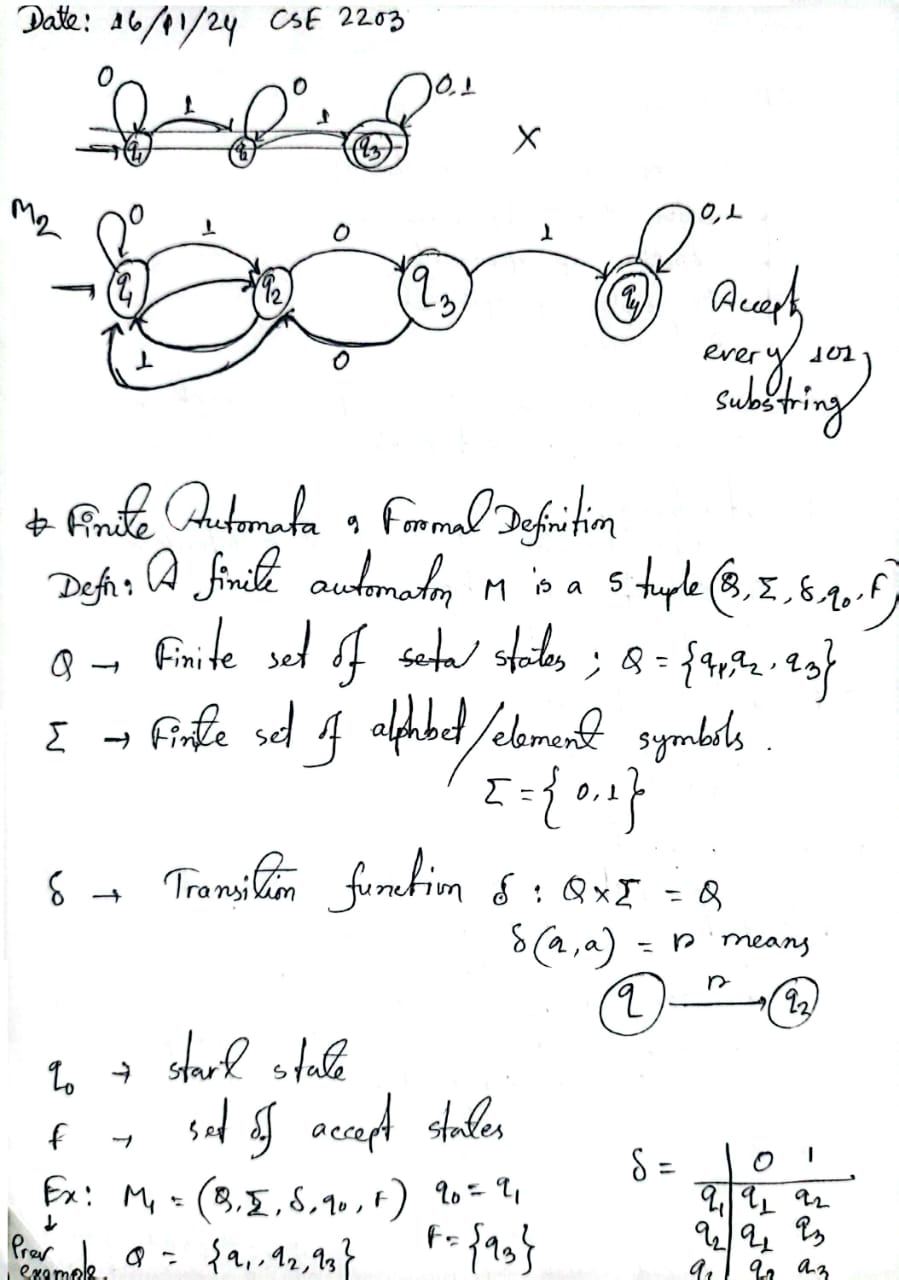 Date: 16/11/24 CSE 2203
0 0 0,1
1 1
q1 q2 q3 X
M2 0 1 0 1 0,1
q1 q2 q3 q4
1 0
Accept
every 101
substring
* Finite Automata, Formal Definition
Defn: A finite automaton M is a 5 tuple (Q, Σ, δ, q0, F)
Q → Finite set of states ; Q = {q1, q2, q3}
Σ → Finite set of alphbet/element symbols.
Σ = {0,1}
δ → Transition function δ : Q×Σ = Q
δ(q,a) = r means
q r q2
q0 → start state
f → set of accept states
Ex: M1 = (Q, Σ, δ, q0, F) q0 = q1
Prev example. Q = {q1, q2, q3} F = {q3}
δ = 0 1
q1 q1 q2
q2 q1 q3
q2 q3